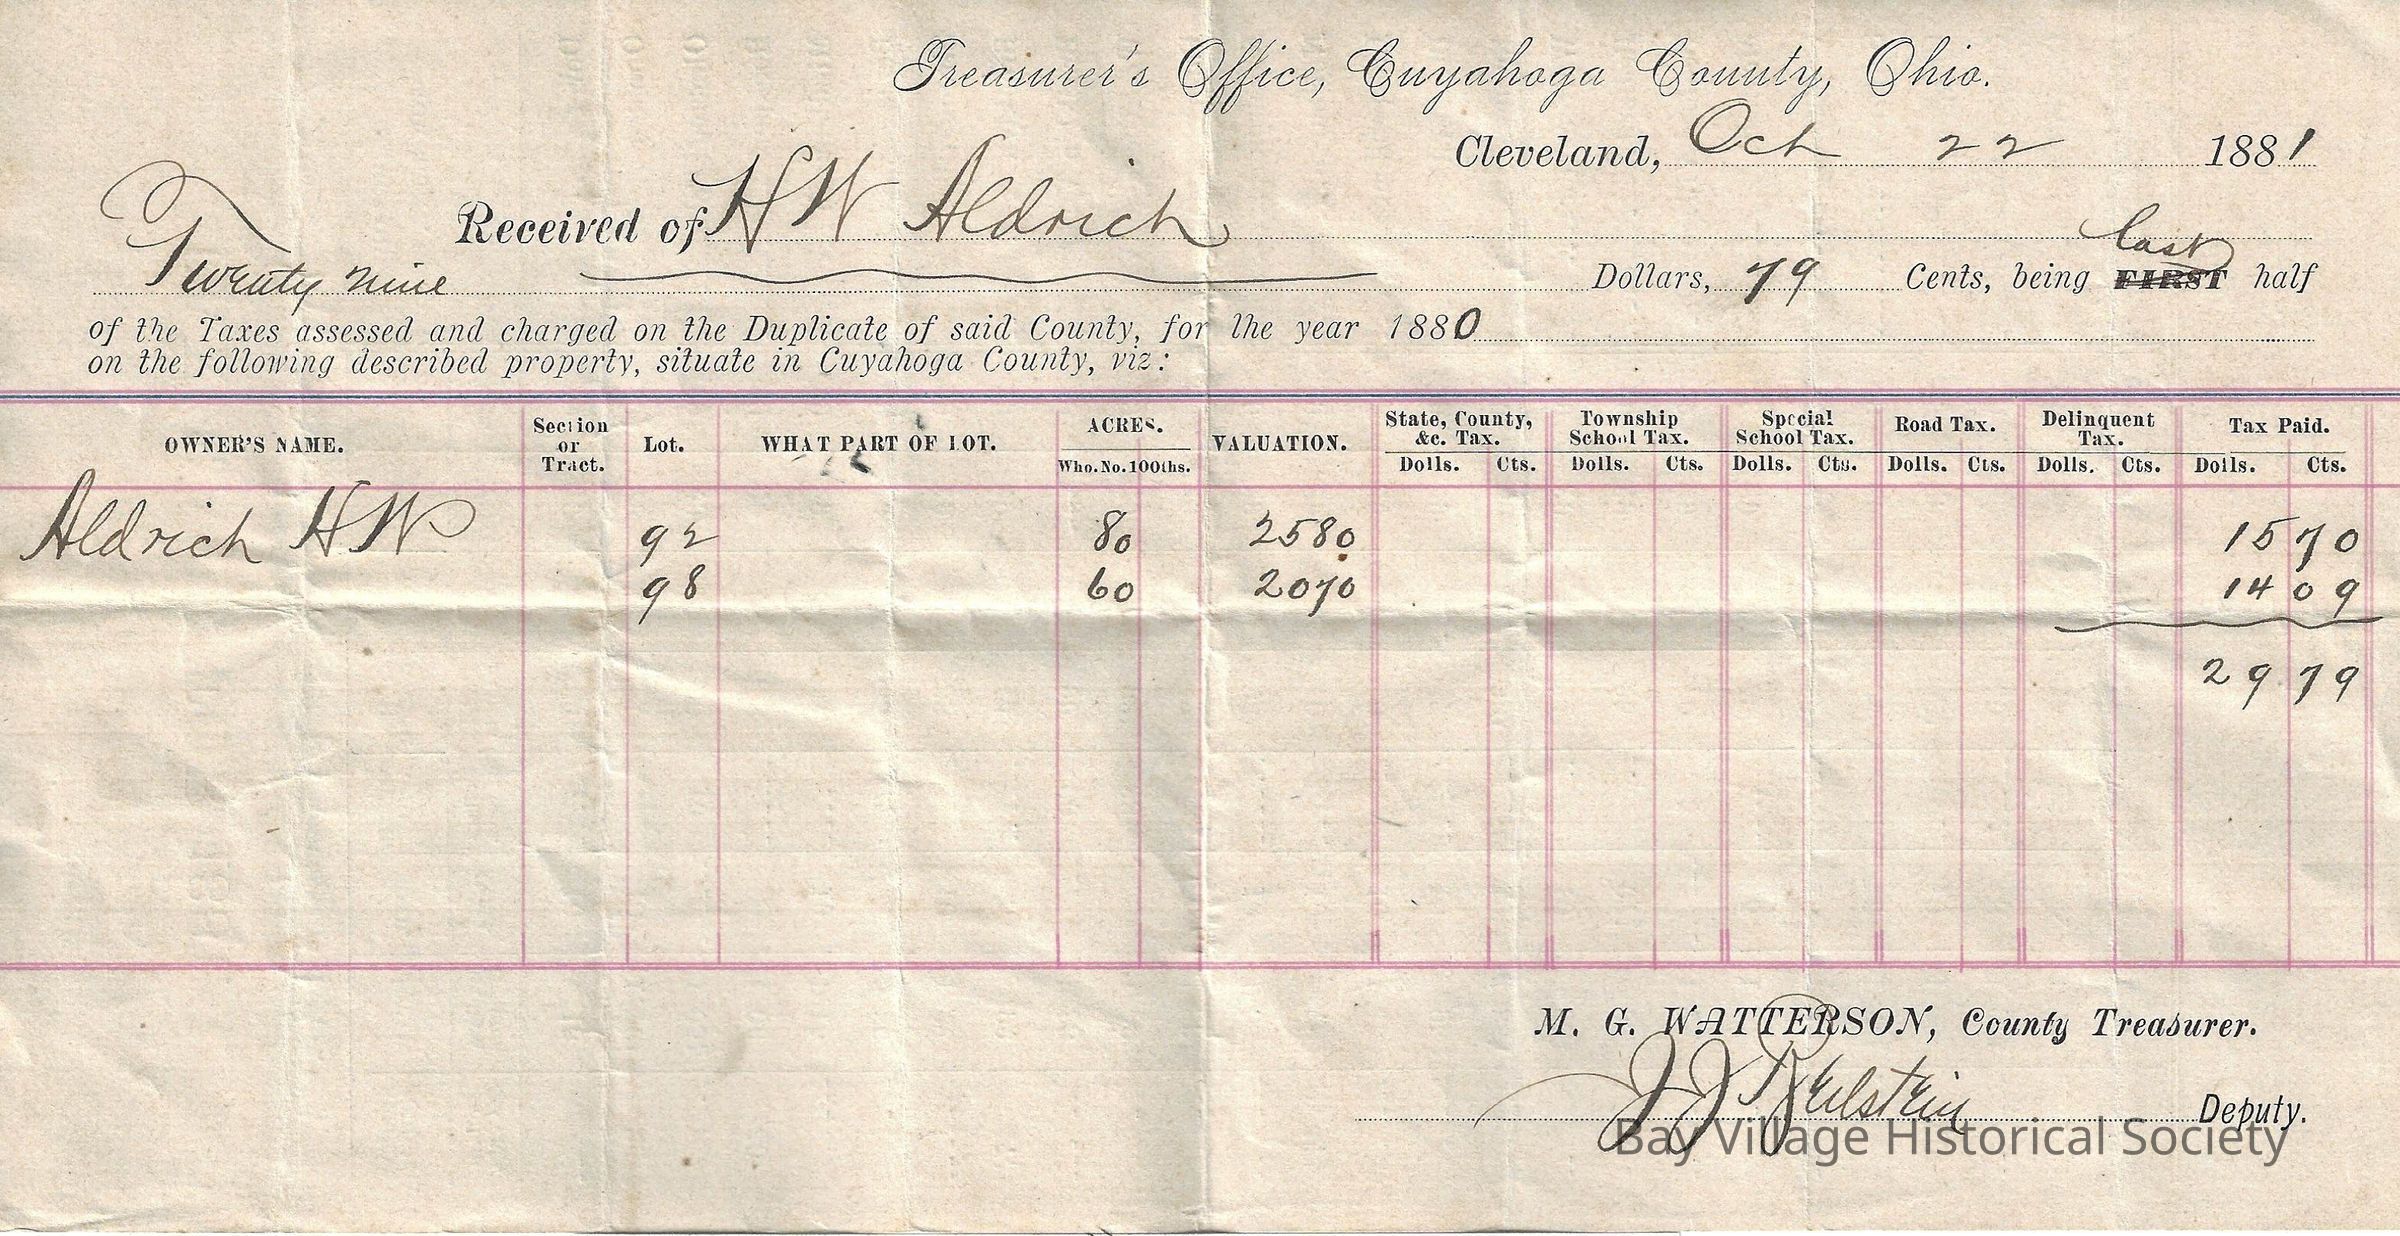 Treasurer's Office, Cuyahoga County, Ohio.
Cleveland, Oct 22 1881
Received of H W Aldrich
Twenty nine Dollars, 79 Cents, being last FIRST half
of the Taxes assessed and charged on the Duplicate of said County, for the year 1880
on the following described property, situate in Cuyahoga County, viz:
OWNER'S NAME. Section or Tract. Lot. WHAT PART OF LOT. ACRES. Who. No. 100ths. VALUATION. State, County, &c. Tax. Dolls. Cts. Township School Tax. Dolls. Cts. Special School Tax. Dolls. Cts. Road Tax. Dolls. Cts. Delinquent Tax. Dolls. Cts. Tax Paid. Dolls. Cts.
Aldrich H W 92 80 2580 15 70
98 60 2070 14 09
29 79
M. G. WATTERSON, County Treasurer.
J J Deputy.
Bay Village Historical Society